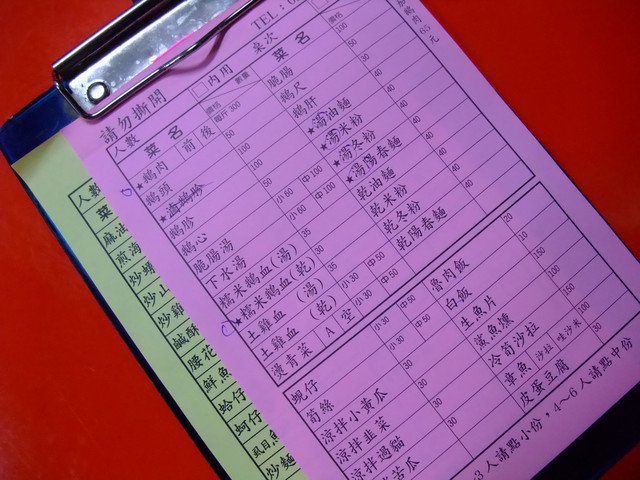 請勿撕開
TEL：0
□內用
桌次
加鵝肉65元
人數
菜名 價格 數量
菜名 價格
★鵝肉 前 後 每斤300
鵝頭 50
鵝胗 100
鵝心 50
脆腸湯
下水湯
糯米鵝血(湯) 30
★糯米鵝血(乾) 35
土雞血(湯)
土雞血(乾)
燙青菜 A 空 小30 中50
脆腸 100
鵝尺 50
鵝肝
★湯油麵 40
★湯米粉 40
★湯冬粉 40
★湯陽春麵 40
乾油麵 40
乾米粉 40
乾冬粉 40
乾陽春麵 40
蜆仔 小30 中50
筍絲 小30 中50
涼拌小黃瓜 30
涼拌韭菜 30
涼拌過貓 30
苦瓜
魯肉飯 20
白飯 10
生魚片 150
鯊魚燻 100
冷筍沙拉 100
章魚 沙拉 哇沙米 100
皮蛋豆腐 30
3人請點小份，4～6人請點中份
人數
菜
麻油
煎海
炒螺
炒山
炒雞
鹹酥
腰花
鮮魚
蛤仔
蚵仔
虱目魚
炒麵